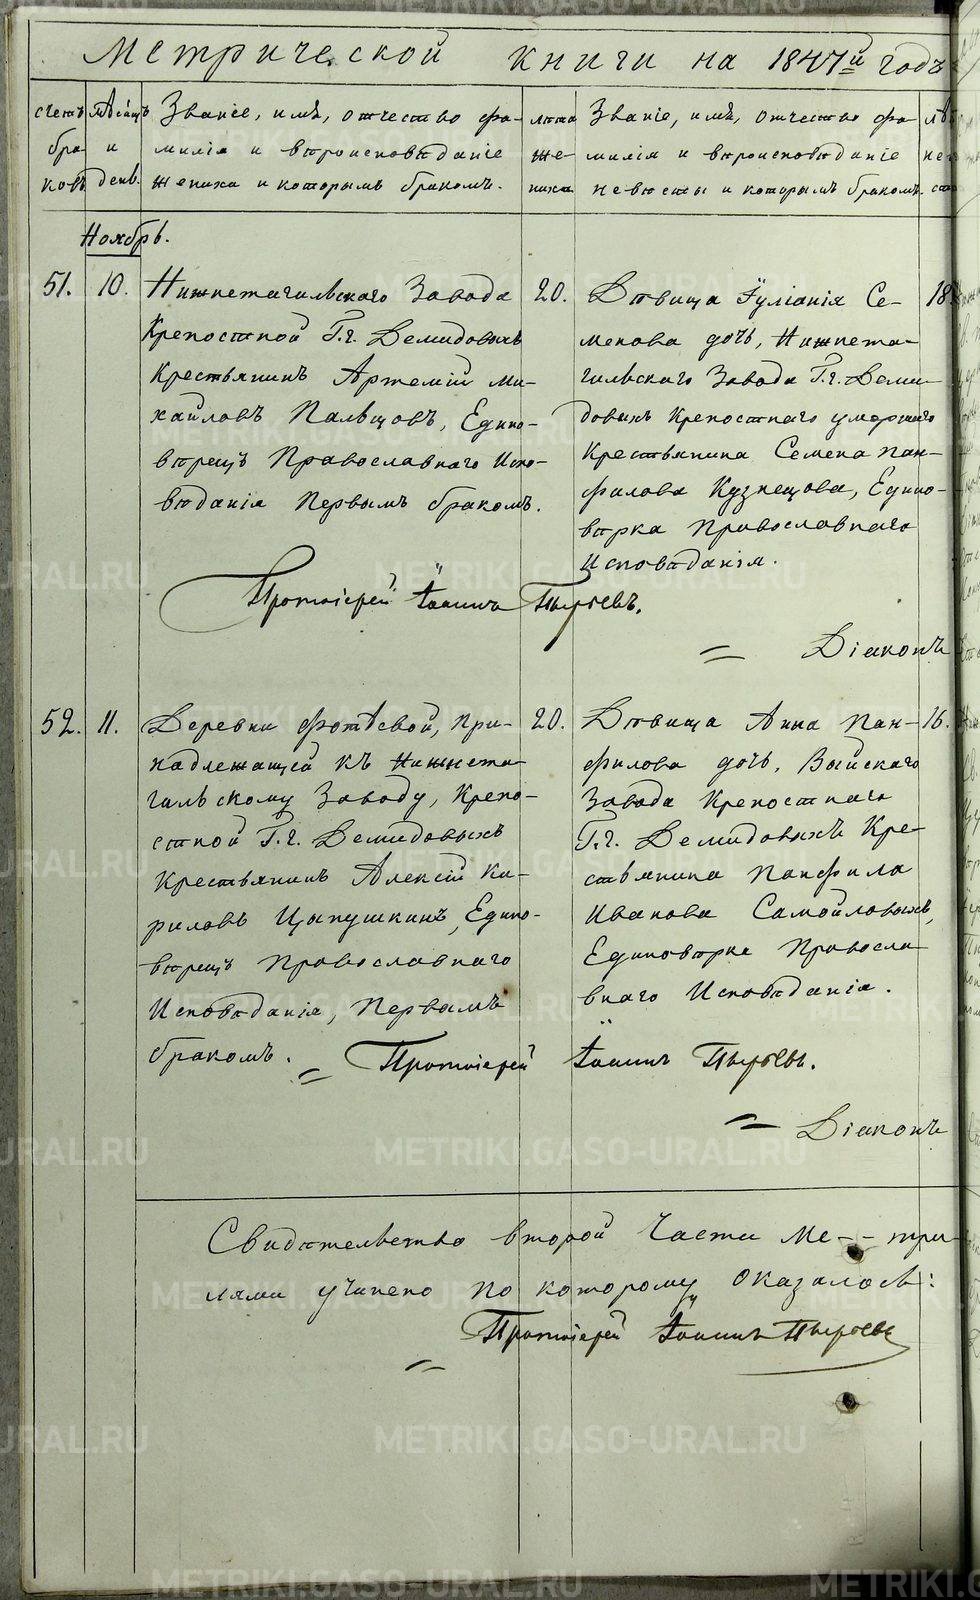 Метрической книги на 1847й годъ
счетъ браковъ
мѣсяцъ и день.
Званіе, имя, отчество фамилія и вѣроисповѣданіе жениха и которымъ бракомъ.
лѣта жениха
Званіе, имя, отчество фамилія и вѣроисповѣданіе невѣсты и которымъ бракомъ.
Ноябрь.
51. 10.
Нижнетагильскаго Завода
Крепостной Г.г. Демидовыхъ
Крестьянинъ Артемій Ми-
хайловъ Пальцовъ, Едино-
вѣрецъ Православнаго Испо-
вѣданія Первымъ бракомъ.
20.
Дѣвица Іуліанія Се-
менова дочь, Нижнета-
гильскаго Завода Г.г. Деми-
довыхъ Крепостнаго умершаго
Крестьянина Семена Пан-
филова Кузнецова, Едино-
вѣрка Православнаго
Исповѣданія.
18.
Протоіерей Іоаннъ Пырьевъ.
Діаконъ
52. 11.
Деревни Фотѣевой, при-
надлежащей къ Нижнета-
гильскому Заводу, Крепо-
стной Г.г. Демидовыхъ
Крестьянинъ Алексій Ки-
риловъ Цыпушкинъ, Едино-
вѣрецъ Православнаго
Исповѣданія, Первымъ
бракомъ.
20.
Дѣвица Анна Пан-
филова дочь, Выйскаго
Завода Крепостнаго
Г.г. Демидовыхъ Кре-
стьянина Панфила
Иванова Самойловыхъ,
Единовѣрка Правосла-
внаго Исповѣданія.
16.
Протоіерей Іоаннъ Пырьевъ.
Діаконъ
Свидѣтельство второй Части Ме-- три-
лями учинено по которому оказалось:
Протоіерей Іоаннъ Пырьевъ
METRIKI.GASO-URAL.RU